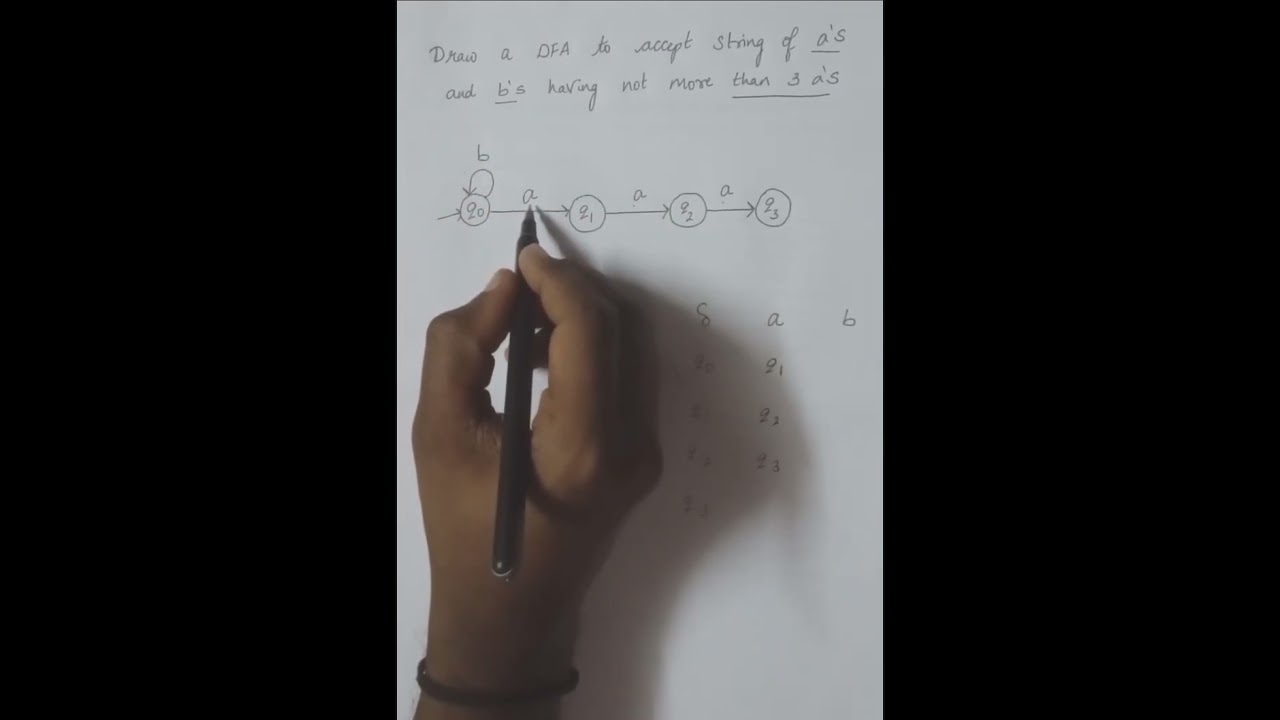 Draw a DFA to accept string of a's
and b's having not more than 3 a's
b
a a a
q0 q1 q2 q3
δ a b
q0 q1
q1 q2
q2 q3
q3